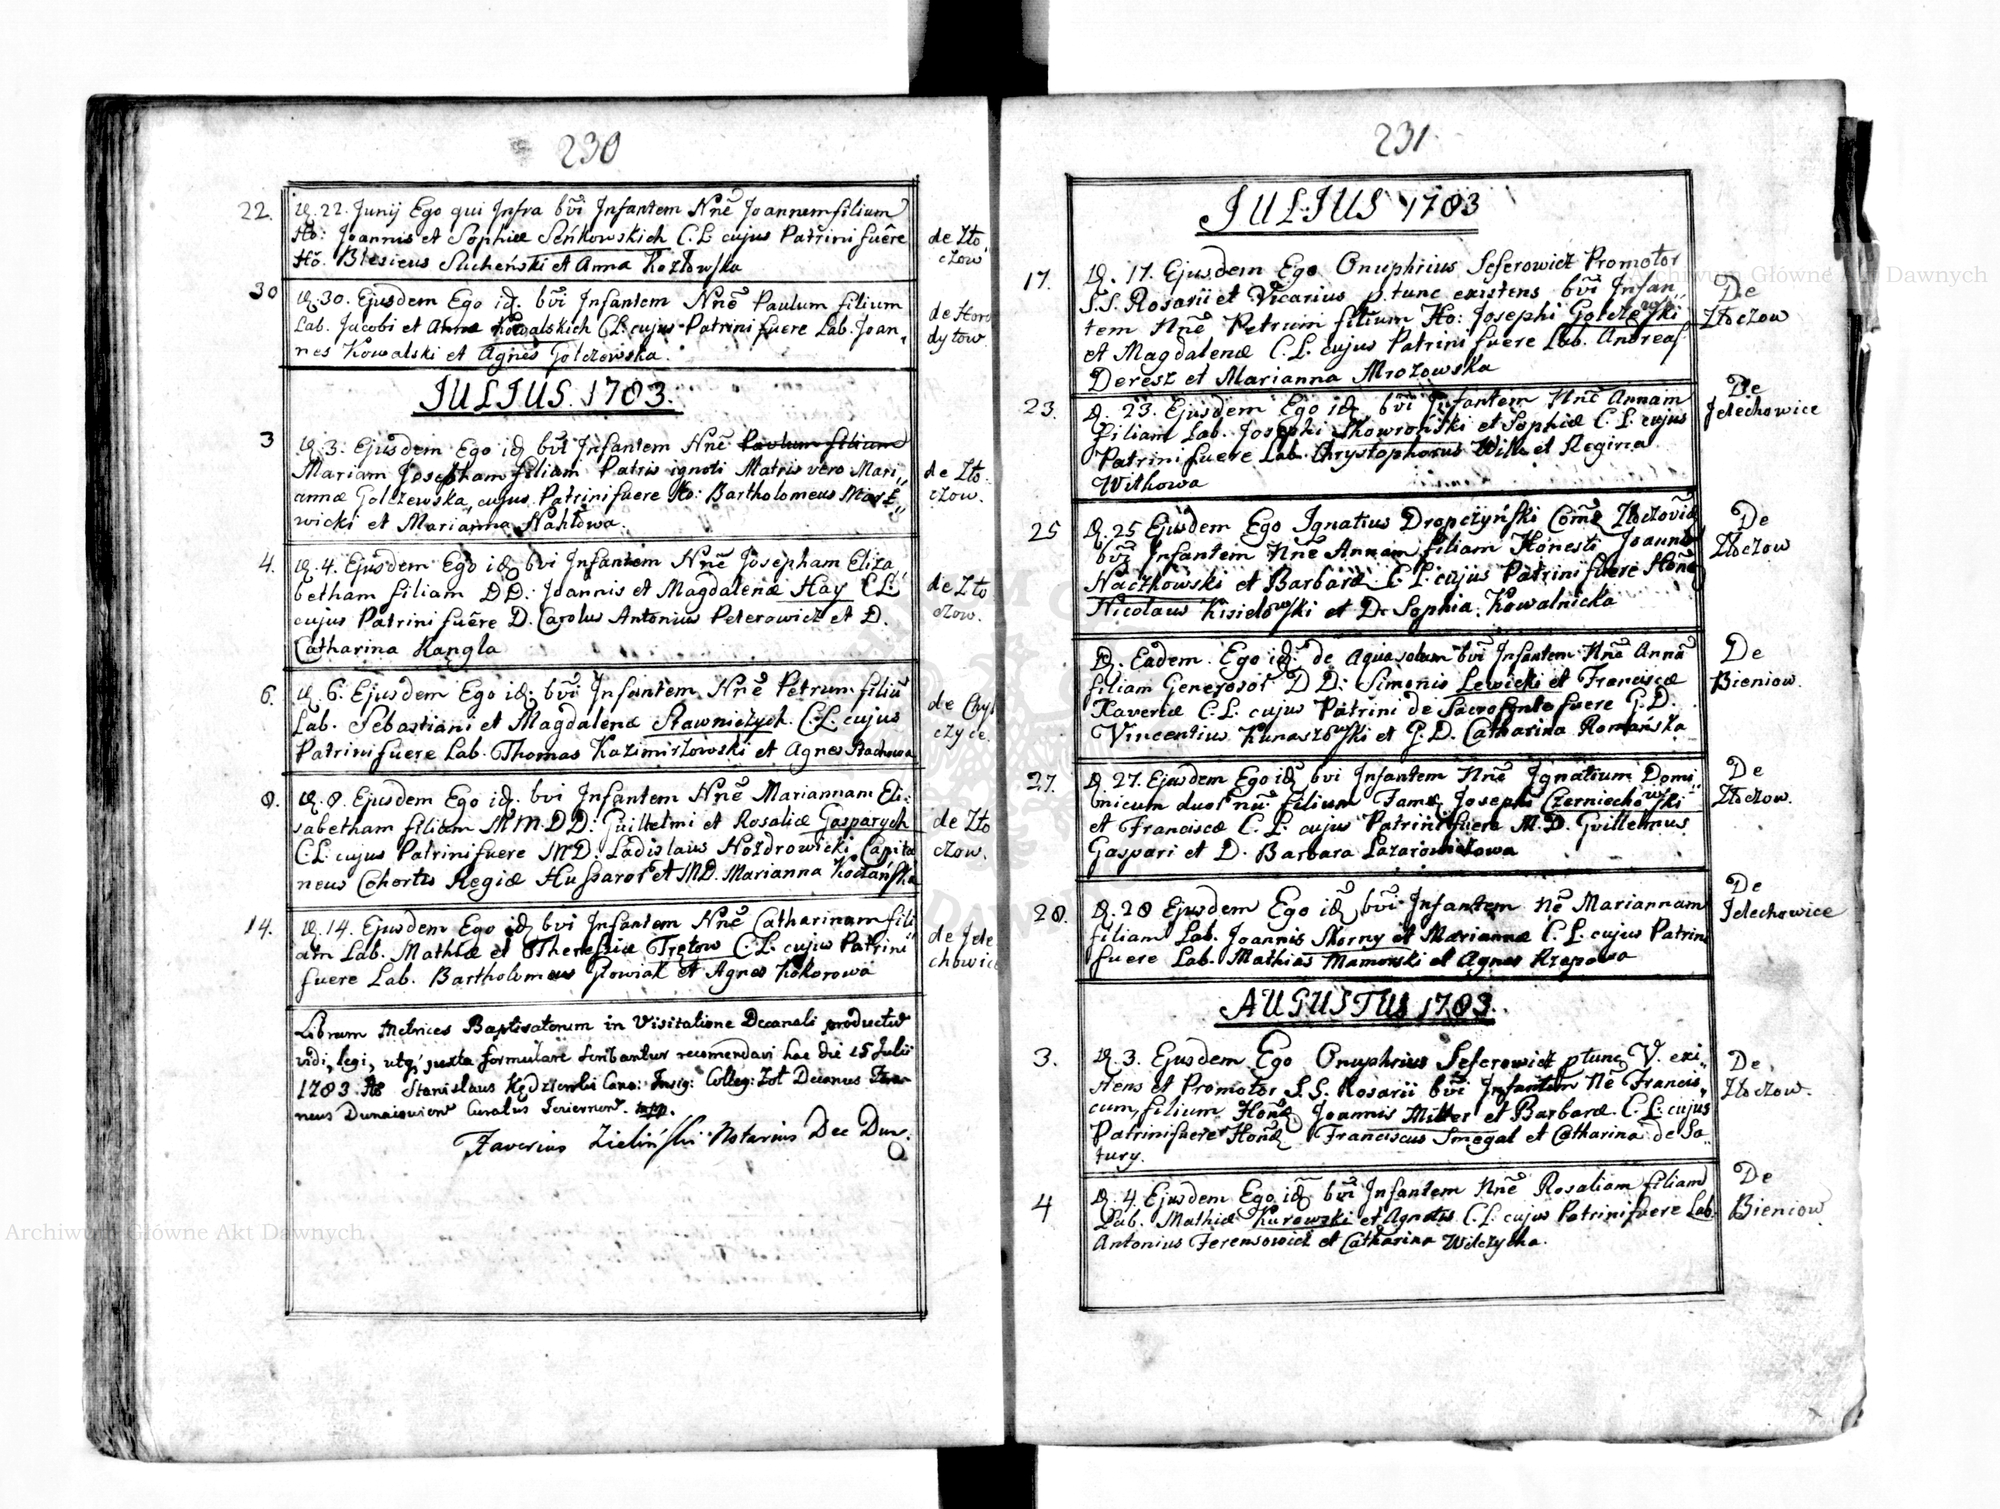 230
22. D. 22. Junij Ego qui Infra bvi Infantem Nnē Joannem filium de Zło
Ho: Joannis et Sophiæ Seńkowskich C.L. cujus Patrini fuêre czow
Ho. Blesieus Sucheński et Anna Kozłowska
30 D. 30. Ejusdem Ego id. bvi Infantem Nnē Paulum filium de Horo
Lab. Jacobi et Annæ Kowalskich C.L. cujus Patrini fuere Lab. Joan„ dyłow.
nes Kowalski et Agnes Golczewska.
IULIUS. 1783.
3 D. 3. Ejusdem Ego id bvi Infantem Nnē Paulum filium
Mariam Josepham filiam Patris ignoti Matris vero Mari„ de Zło
annæ Golczewska, cujus Patrini fuere Ho: Bartholomeus Mark„ czow.
wicki et Marianna Nahłowa.
4. D. 4. Ejusdem Ego id bvi Infantem Nnē Josepham Eliza„
betham filiam DD: Joannis et Magdalenæ Hay C.L: de Zło
cujus Patrini fuêre D. Carolus Antonius Peterowicz et D. czow.
Catharina Kangla
6. D. 6. Ejusdem Ego id. bvi Infantem Nnē Petrum filiū de Chyl
Lab. Sebastiani et Magdalenæ Sławniczych C.L. cujus czyce.
Patrini fuere Lab. Thomas Kazimirzowski et Agnes Stachowa
8. D. 8. Ejusdem Ego id. bvi Infantem Nnē Mariannam Eli:
sabetham filiam M.M.DD: Guilhelmi et Rosaliæ Gasparych de Zło
C.L. cujus Patrini fuere MD: Ladislaus Nozdrowicki Capita czow.
neus Cohortis Regiæ Hussaror et MD. Marianna Kociańska
14. D. 14. Ejusdem Ego id bvi Infantem Nnē Catharinam fili
am Lab. Mathiæ et Theresiæ Trętow C.L. cujus Patrini de Jele
fuere Lab. Bartholomeus Głowiak et Agnes Kokorowa chowice
Librum Metrices Baptisatorum in Visitatione Decanali productū
vidi, legi, utq; juxta formulare scribantur recomendavi hac die 15 Julii
1783. Stanislaus Kędzierski Cano: Insig: Colleg: Zoł Decanus
neus Dunaiovien Curatus mpp.
Xaverius Zieliński Notarius Dec Dun.
231
IULIUS 1783
17. D. 17. Ejusdem Ego Onuphrius Seferowicz Promotor
S.S. Rosarii et Vicarius p. tunc existens bvi Infan De
tem Nnē Petrum filium Ho: Josephi Golczewski Złoczow
et Magdalenæ C.L. cujus Patrini fuere Lab. Andreas
Deresz et Marianna Mrozowska
23. D. 23. Ejusdem Ego id bvi Infantem Nnē Annam De
filiam Lab. Josephi Skowroński et Sophiæ C.L. cujus Jelechowice
Patrini fuere Lab. Chrystophorus Witk et Regina
Witkowa
25 D. 25 Ejusdem Ego Ignatius Dropczyński Comē Złoczoviæ De
bvi Infantem Nnē Annam filiam Honesti Joannis Złoczow
Naczkowski et Barbaræ C.L. cujus Patrini fuere Hone
Nicolaus Kisielowski et D. Sophia Kowalnicka
D. Eadem. Ego id: de aqua solum bvi Infantem Nnē Annā De
filiam Generosor DD: Simonis Lewicki et Franciscæ Bieniow.
Xaveriæ C.L. cujus Patrini de Sacro fonte fuere G.D.
Vincentius Kunaszowski et G.D. Catharina Romańska
27. D. 27. Ejusdem Ego id bvi Infantem Nnē Ignatium Domi De
nicum duor nū: filium Fam Josephi Czerniechowski Złoczow.
et Franciscæ C.L. cujus Patrini fuere M.D. Guillelmus
Gaspari et D. Barbara Lazarowiczowa
28. D. 28 Ejusdem Ego id bvi Infantem nē Mariannam De
filiam Lab. Joannis Skorny et Mariannæ C.L. cujus Patrini Jelechowice
fuere Lab. Mathias Mamorski et Agnes Rzepowa
AUGUSTUS 1783.
3. D. 3. Ejusdem Ego Onuphrius Seferowicz ptunc V. exi„ De
stens et Promotor S.S. Rosarii bvi Infantem Nē Francis„ Złoczow.
cum filium Hon Joannis Miller et Barbaræ C.L. cujus
Patrini fuere Hon Franciscus Smegal et Catharina de Sa„
tury.
4 D. 4 Ejusdem Ego id bvi Infantem Nnē Rosaliam filiam De
Lab. Mathiæ Kurowski et Agnetis C.L. cujus Patrini fuere Lab. Bieniow
Antonius Ferensowicz et Catharina Wilczycka.
Archiwum Główne Akt Dawnych
Archiwum Główne Akt Dawnych